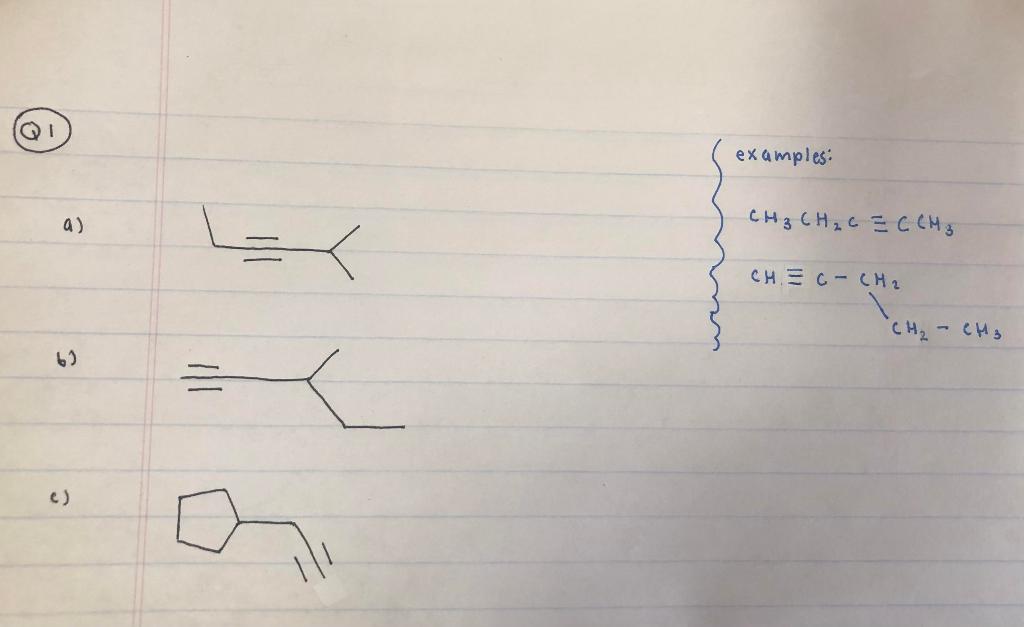 Q1
a)
b)
c)
examples:
CH₃CH₂C≡CCH₃
CH≡C-CH₂
CH₂-CH₃